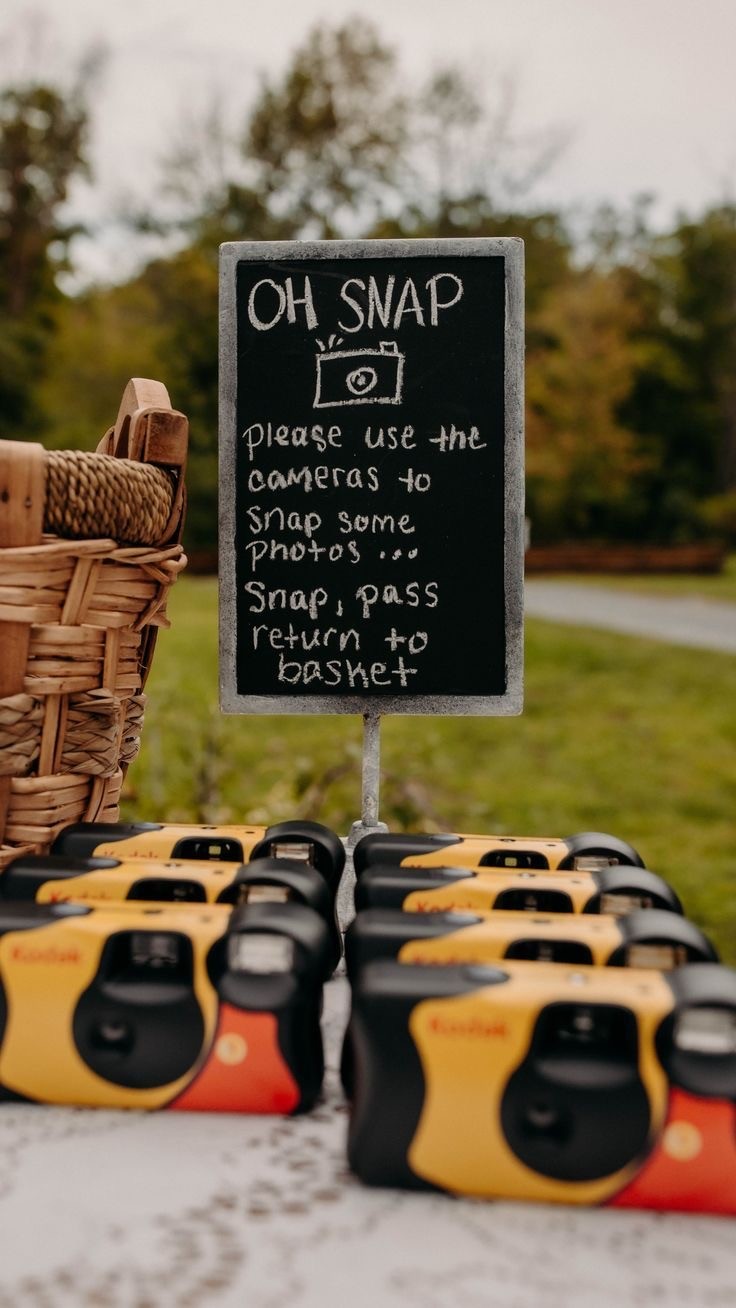 OH SNAP
please use the
cameras to
snap some
photos ...
Snap, pass
return to
basket
Kodak
Kodak
Kodak
Kodak
Kodak
Kodak
Kodak